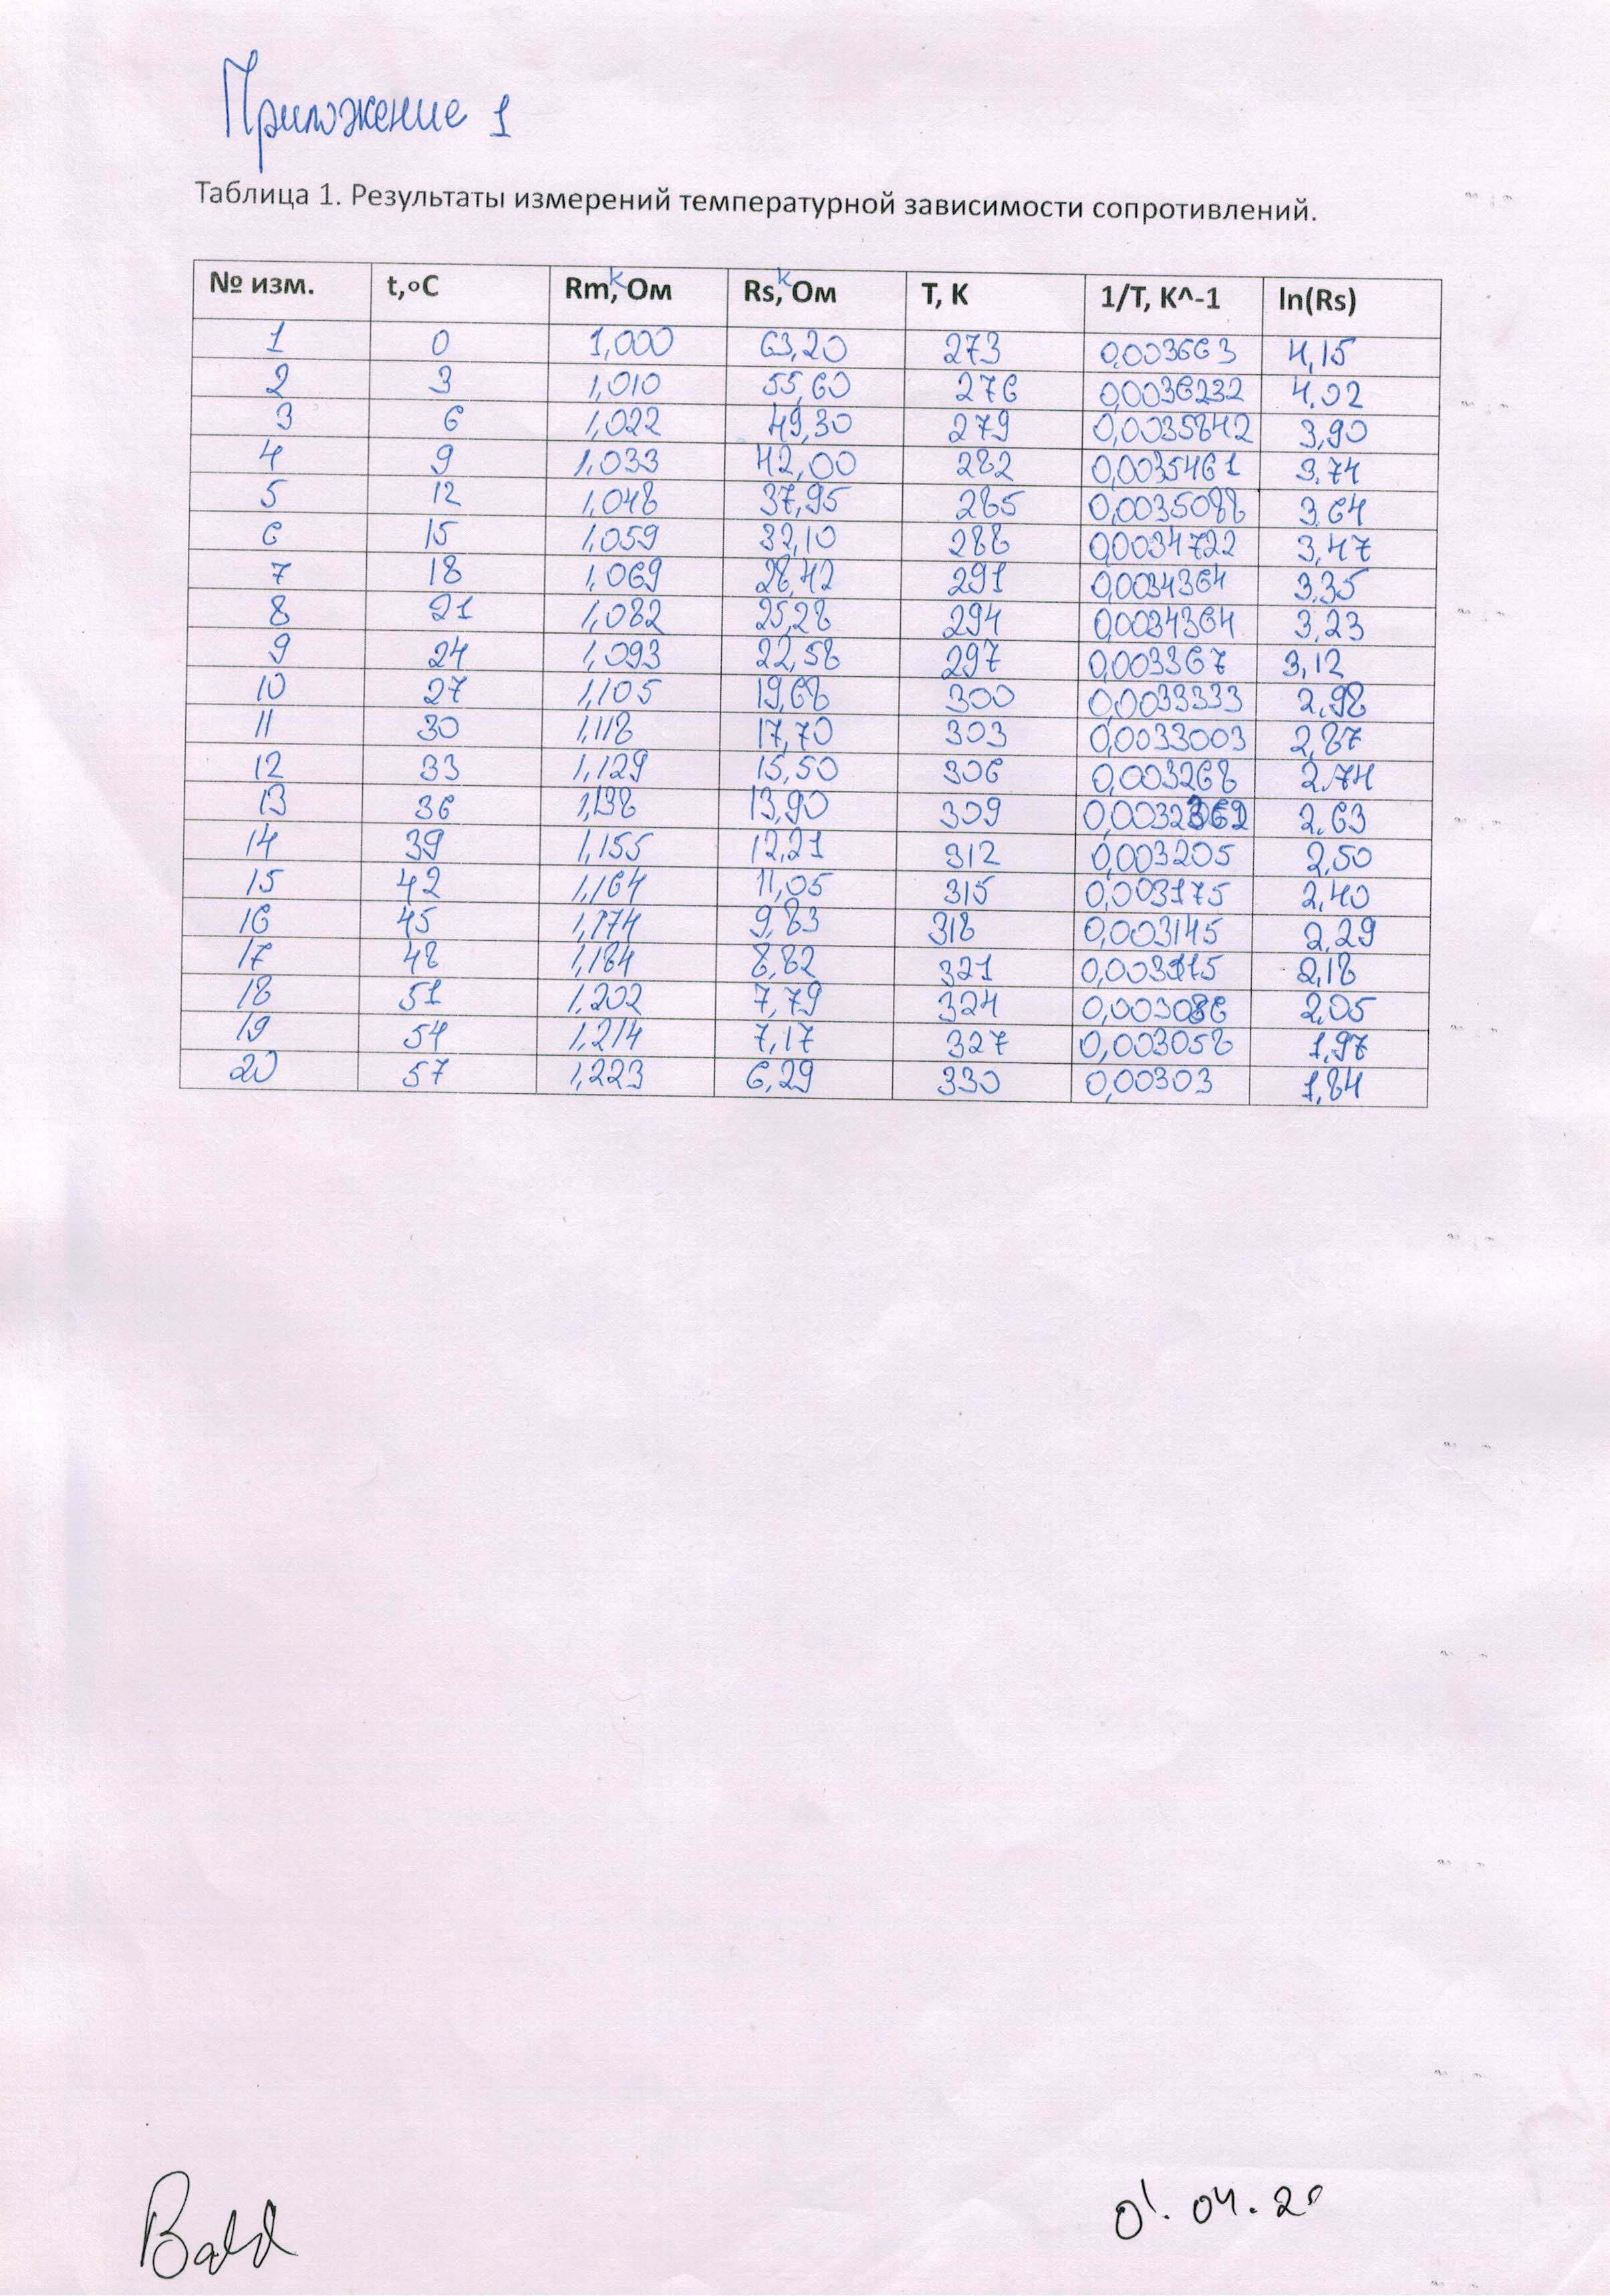 Приложение 1
Таблица 1. Результаты измерений температурной зависимости сопротивлений.
№ изм. t,оС Rm, кОм Rs, кОм T, K 1/T, K^-1 ln(Rs)
1 0 1,000 63,20 273 0,003663 4,15
2 3 1,010 55,60 276 0,0036232 4,02
3 6 1,022 49,30 279 0,0035842 3,90
4 9 1,033 42,00 282 0,0035461 3,74
5 12 1,048 37,95 285 0,0035088 3,64
6 15 1,059 32,10 288 0,0034722 3,47
7 18 1,069 28,42 291 0,0034364 3,35
8 21 1,082 25,28 294 0,0034364 3,23
9 24 1,093 22,58 297 0,003367 3,12
10 27 1,105 19,68 300 0,0033333 2,98
11 30 1,118 17,70 303 0,0033003 2,87
12 33 1,129 15,50 306 0,003268 2,74
13 36 1,138 13,90 309 0,0032362 2,63
14 39 1,155 12,21 312 0,003205 2,50
15 42 1,164 11,05 315 0,003175 2,40
16 45 1,174 9,83 318 0,003145 2,29
17 48 1,184 8,82 321 0,003115 2,18
18 51 1,202 7,79 324 0,003086 2,05
19 54 1,214 7,17 327 0,003058 1,97
20 57 1,223 6,29 330 0,00303 1,84
04.2